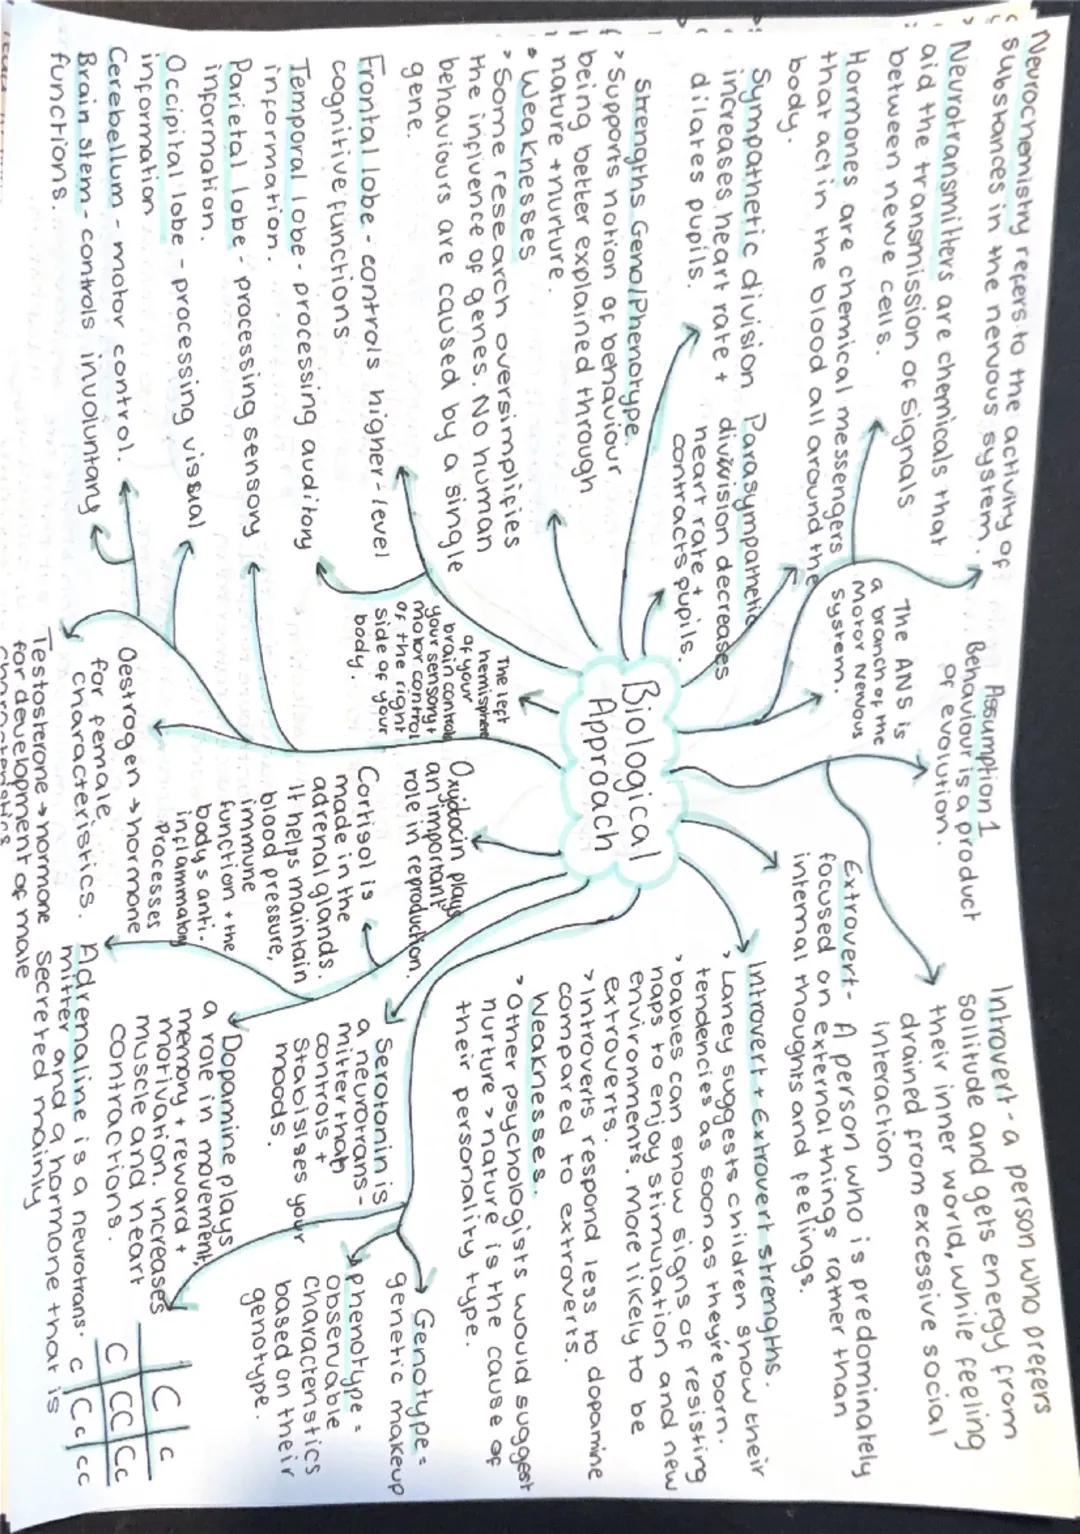 Neurochemistry refers to the activity of
substances in the nervous system.
Neurotransmitters are chemicals that
aid the transmission of signals
between nerve cells.
Hormones are chemical messengers
that act in the blood all around the
body.
Sympathetic division
increases heart rate +
dilates pupils.
Parasympathetic
division decreases
heart rate +
contracts pupils.
Strengths Geno/Phenotype.
> Supports notion of behaviour
being better explained through
nature + nurture.
• Weaknesses
> Some research oversimplifies
the influence of genes. No human
behaviours are caused by a single
gene.
Frontal lobe - controls higher-level
cognitive functions
Temporal lobe - processing auditory
information.
Parietal lobe - processing sensory
information.
Occipital lobe - processing visual
information
Cerebellum - motor control.
Brain stem - controls involuntary
functions.
Assumption 1
Behaviour is a product
of evolution.
The ANS is
a branch of the
Motor Nervous
System.
Biological
Approach
The left
hemisphere
of your
brain controls
your sensory +
motor control
of the right
side of your
body.
Oxytocin plays
an important
role in reproduction.
Cortisol is
made in the
adrenal glands.
It helps maintain
blood pressure,
immune
function + the
body's anti-
inflammatory
processes
Oestrogen → hormone
for female
characteristics.
Testosterone → hormone
for development of male
characteristics
Introvert - a person who prefers
solitude and gets energy from
their inner world, while feeling
drained from excessive social
interaction
Extrovert - A person who is predominately
focused on external things rather than
internal thoughts and feelings.
Introvert + Extrovert strengths.
> Laney suggests children show their
tendencies as soon as they're born.
> babies can show signs of resisting
naps to enjoy stimulation and new
environments. More likely to be
extroverts.
> Introverts respond less to dopamine
compared to extroverts.
Weaknesses.
> Other psychologists would suggest
nurture > nature is the cause of
their personality type.
Serotonin is
a neurotrans-
mitter that
controls +
stabisises your
moods.
Genotype =
genetic makeup
phenotype =
observable
characteristics
based on their
genotype.
Dopamine plays
a role in movement,
memory + reward +
motivation. increases
muscle and heart
contractions.
Adrenaline is a neurotrans-
mitter and a hormone that is
secreted mainly
C c
C CC Cc
c Cc cc